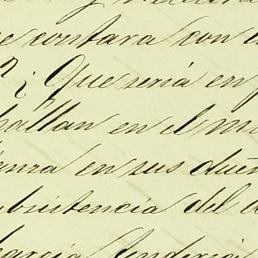 e contara con
? ¿Que seria en
hallan en el m
anza en sus due
bsistencia del